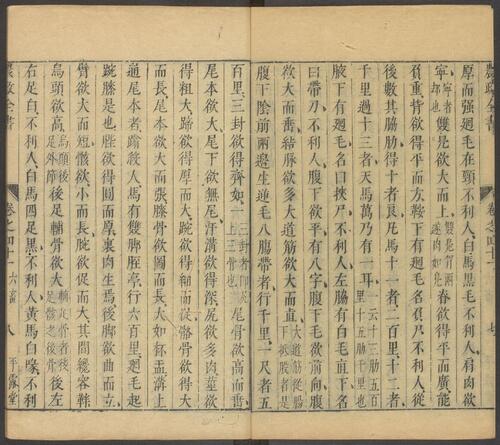 厚而强廻毛在頸不利人白馬黑毛不利人肩肉欲
寧寧者郤也雙鳧欲大而上雙鳧胸兩邊肉如鳧脊欲得平而廣能
負重背欲得平而方鞍下有廻毛名負尸不利人從
後數其脇肋得十者良凡馬十一者二百里十二者
千里過十三者天馬萬乃有一耳一云十三肋五百里十五肋千里也
腋下有廻毛名曰挾尸不利人左脇有白毛直下名
曰帶刀不利人腹下欲平有八字腹下毛欲前向腹
欲大而垂結脉欲多大道筋欲大而直大道筋從腋下抵股者是
腹下陰前兩邊生逆毛入腸帶者行千里一尺者五
百里三封欲得齊如一三封者即尻上三骨也尾骨欲高而垂
尾本欲大尾下欲無尾汗溝欲得深尻欲多肉莖欲
得粗大蹄欲得厚而大踠欲得細而促骼骨欲得大
而長尾本欲大而張膝骨欲圓而長大如杯盂溝上
通尾本者蹹殺人馬有雙脚脛亭行六百里廻毛起
踠膝是也䏶欲得圓而厚裏肉生焉後脚欲曲而立
臂欲大而短骸欲小而長踠欲促而大其間纔容靽
烏頭欲高烏頭後足外節後足輔骨欲大輔足骨者後足骸之後骨後左
右足白不利人白馬四足黑不利人黃馬白喙不利
農政全書 卷之四十一 六畜 八 平露堂